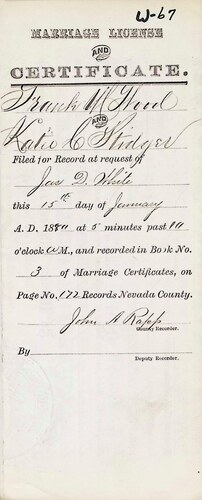 W-67
MARRIAGE LICENSE
AND
CERTIFICATE.
Frank W Wood
AND
Katie C Stidger
Filed for Record at request of
Jas D. White
this 15th day of January
A. D. 1880 at 5 minutes past 10
o'clock A M., and recorded in Book No.
3 of Marriage Certificates, on
Page No. 172 Records Nevada County.
John A Rapp
County Recorder.
By
Deputy Recorder.